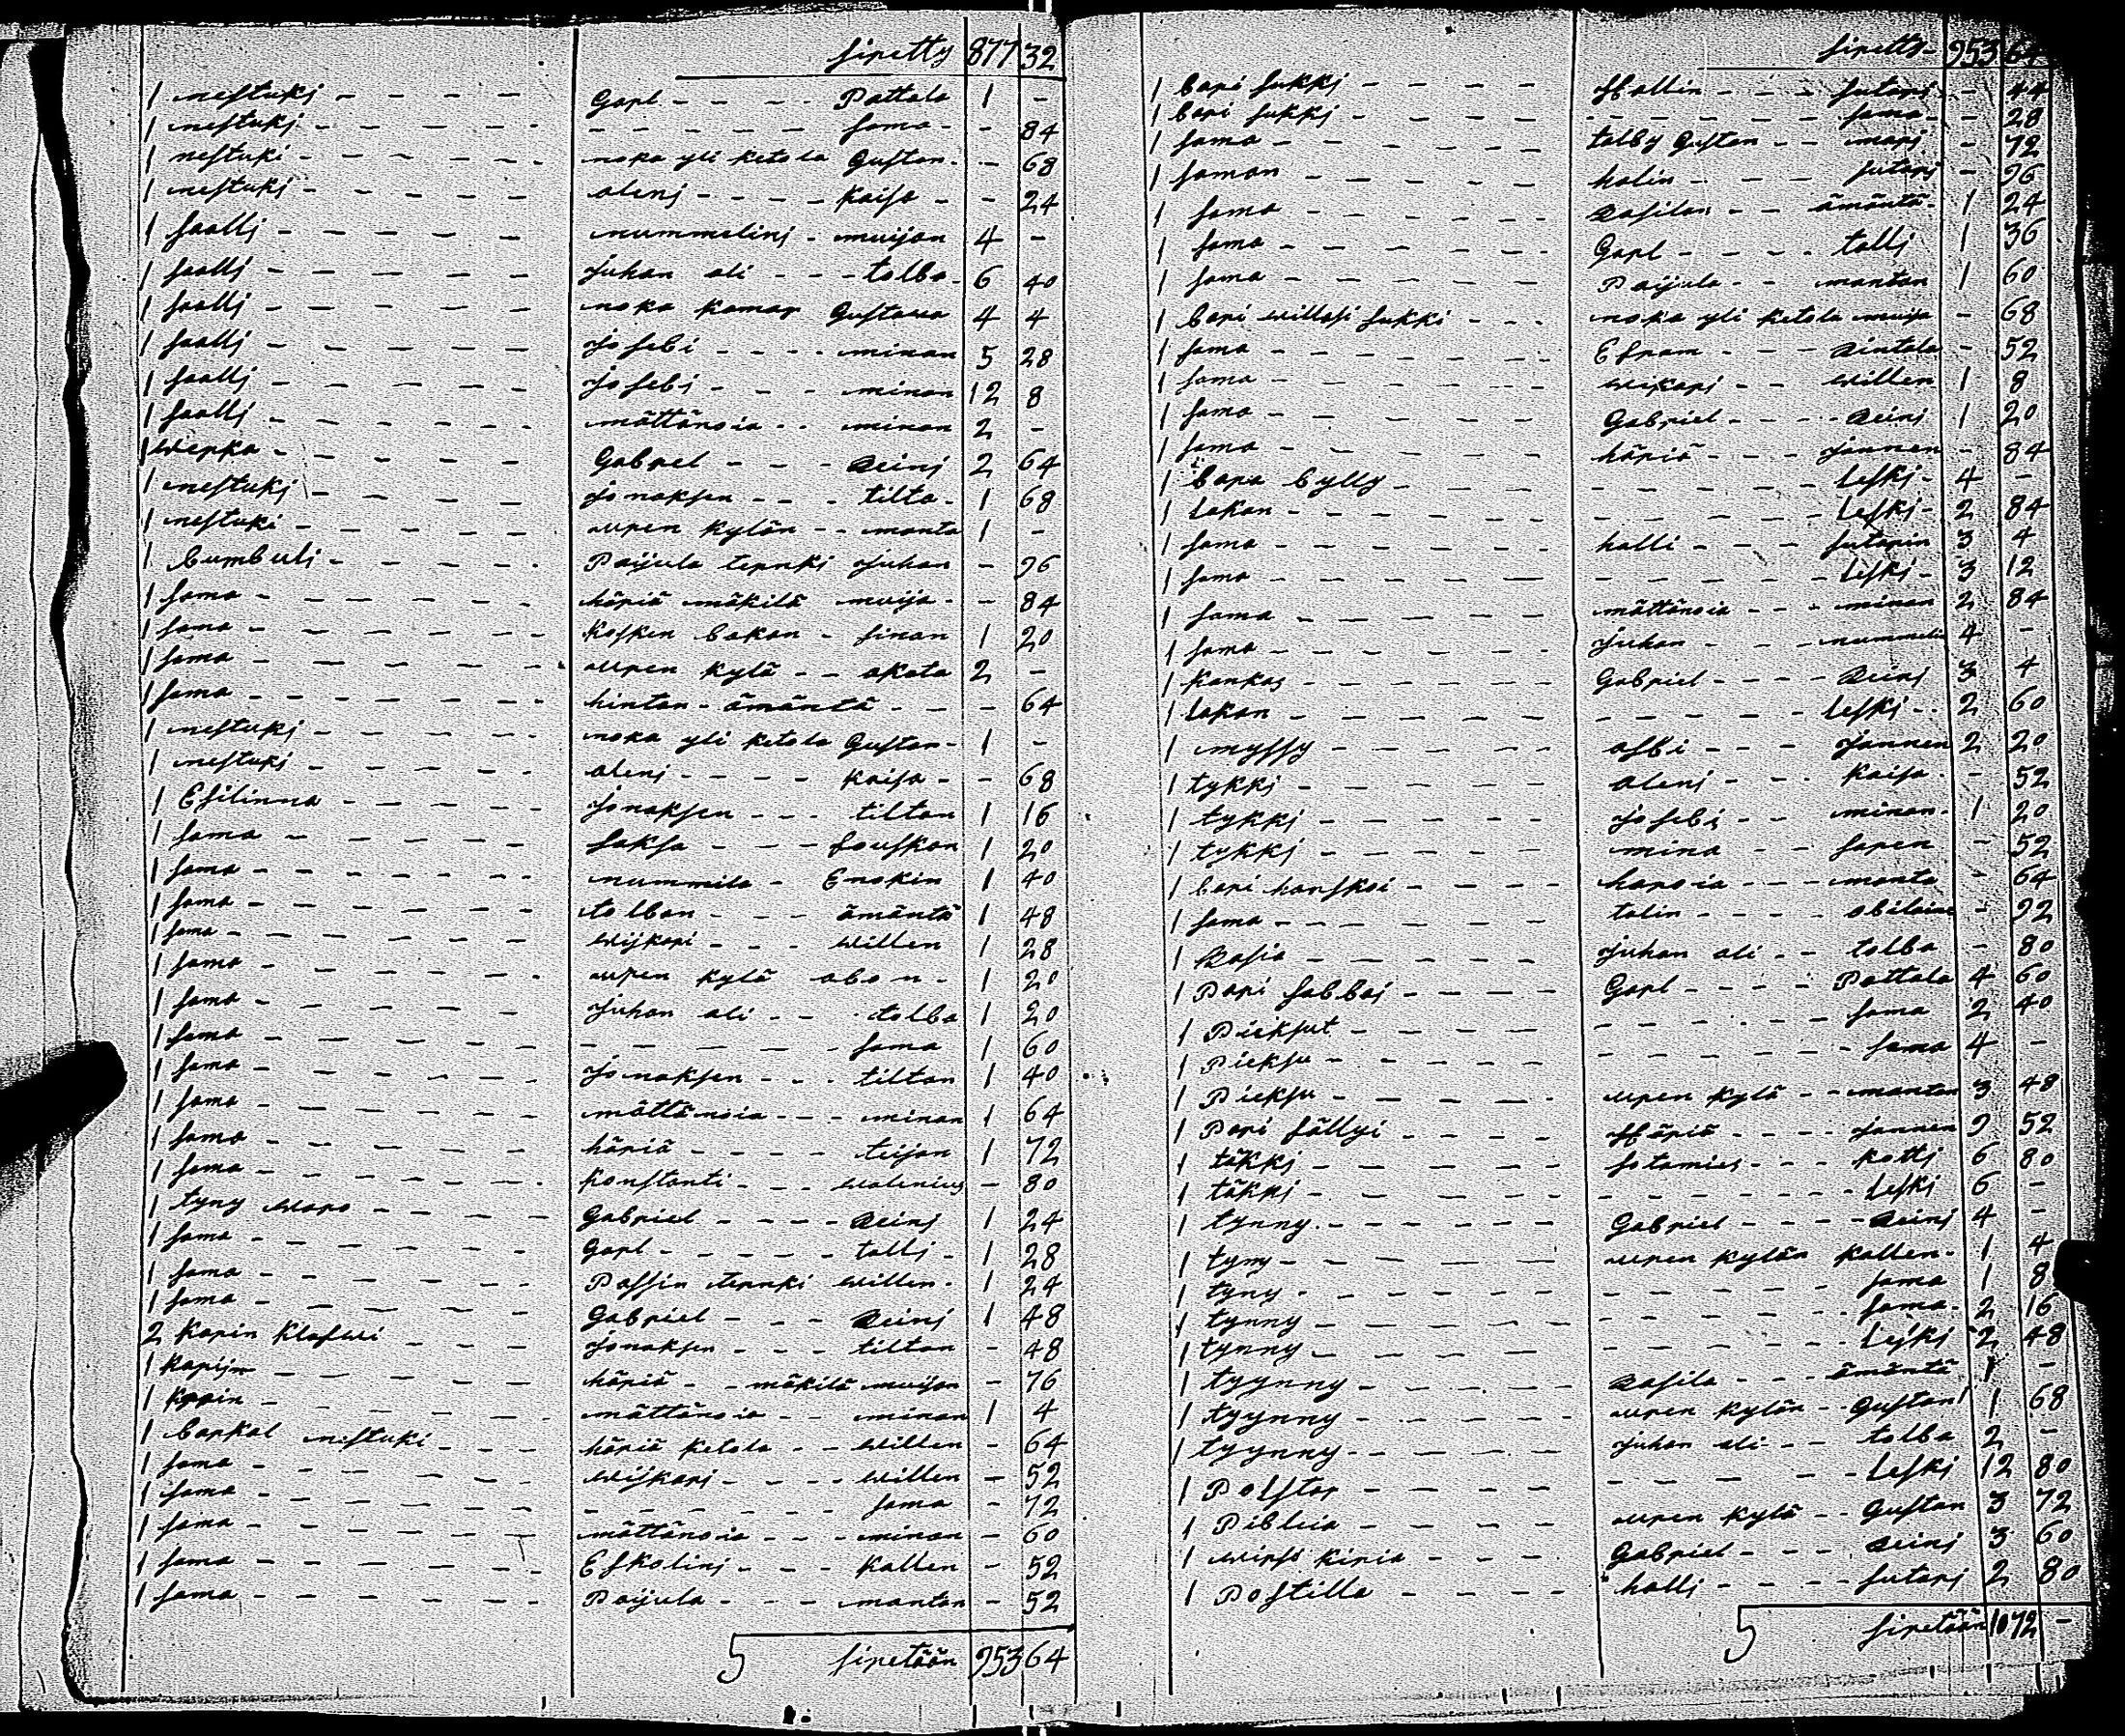 siretty 877 32
1 nestuki - - - - - Garl - - - - Pattala 1 -
1 nestuki - - - - - - - - - - sama - - 84
1 nestuki - - - - - noka yli ketola Gustan - - 68
1 nestuki - - - - - aleni - - - - kaisa - - 24
1 saalli - - - - - nummelini - muijan 4 -
1 saalli - - - - - Juhan ali - - - talba - 6 40
1 saalli - - - - - noka kamar Gustava 4 4
1 saalli - - - - - Josebi - - - - minan 5 28
1 saalli - - - - - Josebi - - - - minan 12 8
1 saalli - - - - - mättänoia - - minan 2 -
1 Werka - - - - - Gabriel - - - Heinj 2 64
1 nestuki - - - - - Jonaksen - - - tilta - 1 68
1 nestuki - - - - - uuren kylän - - manta 1 -
1 bumbuli - - - - - Paijula ternki Juhan - 96
1 sama - - - - - häriä mäkilä muija - - 84
1 sama - - - - - kosken bakan - sinan 1 20
1 sama - - - - - uuren kylä - - akata 2 -
1 sama - - - - - hintan - ämäntä - - - 64
1 nestuki - - - - - noka yli ketola Gustan - 1 -
1 nestuki - - - - - aleni - - - - kaisa - - 68
1 Esilinna - - - - - Jonaksen - - - tiltan 1 16
1 sama - - - - - saksa - - - fouskan 1 20
1 sama - - - - - nummila - Enokin 1 40
1 sama - - - - - talban - - - ämäntä 1 48
1 sama - - - - - wijkari - - - willen 1 28
1 sama - - - - - uuren kylä abon - 1 20
1 sama - - - - - Juhan ali - - - talba 1 20
1 sama - - - - - - - - - - sama 1 60
1 sama - - - - - Jonaksen - - - tiltan 1 40
1 sama - - - - - mättänoia - - - minan 1 64
1 sama - - - - - häriä - - - - teijan 1 72
1 sama - - - - - konstanti - - - walenius - 80
1 tyny waro - - - - Gabriel - - - - Heinj 1 24
1 sama - - - - - Garl - - - - - talli - 1 28
1 sama - - - - - Passin ternki willen - 1 24
1 sama - - - - - Gabriel - - - Heinj 1 48
2 karin klaswi - - - - Jonaksen - - - tiltan - 48
1 karijn - - - - - häriä - - mäkilä muijan - 76
1 karin - - - - - mättänoia - - minan 1 4
1 barkal nestuki - - - häriä ketola - - willen - 64
1 sama - - - - - wijkari - - - - willen - 52
1 sama - - - - - - - - - - sama - 72
1 sama - - - - - mättänoia - - - minan - 60
1 sama - - - - - Eskolinj - - - kallen - 52
1 sama - - - - - Paijula - - - mantan - 52
5 siretään 953 64
siretty - 953 64
1 bari sukki - - - - - Hallin - - - sutari - 44
1 bari sukki - - - - - - - - - - sama - - 28
1 sama - - - - - talby Gustan - - mari - 72
1 saman - - - - - halin - - - sutari - 96
1 sama - - - - - Hasilan - - ämäntä - 1 24
1 sama - - - - - Garl - - - talli 1 36
1 sama - - - - - Paijula - - mantan 1 60
1 bari willasi sukki - - - noka yli ketola muija - 68
1 sama - - - - - Efram - - - Hintala - 52
1 sama - - - - - wikari - - willen 1 8
1 sama - - - - - Gabriel - - - Heinj 1 20
1 sama - - - - - häriä - - - Jannen - 84
1 bara bylly - - - - - - - - - leski - 4 -
1 lakan - - - - - - - - - - leski - 2 84
1 sama - - - - - halli - - - sutarin 3 4
1 sama - - - - - - - - - - leski - 3 12
1 sama - - - - - mättänoia - - - minan 2 84
1 sama - - - - - Juhan - - - nummelin 4 -
1 kankas - - - - - Gabriel - - - - Heinj 3 4
1 lakan - - - - - - - - - - leski - - 2 60
1 myssy - - - - - asbi - - - Jannen 2 20
1 tykki - - - - - aleni - - - kaisa - - 52
1 tykki - - - - - Josebi - - minan - 1 20
1 tykki - - - - - mina - - saren - 52
1 bari hanskoi - - - - haroia - - - manta - 64
1 sama - - - - - talin - - - - 92
1 Hasia - - - - - Juhan ali - - talba - 80
1 Pari sabbai - - - - Garl - - - - Pattala 4 60
1 Pieksut - - - - - - - - - - sama 2 40
1 Pieksu - - - - - - - - - - sama 4 -
1 Pieksu - - - - - uuren kylä - - mantan 3 48
1 Pari sällyi - - - - Häriä - - - Jannen 9 52
1 täkki - - - - - sotamies - - - kotti 6 80
1 täkki - - - - - - - - - - leski 6 -
1 tynny - - - - - Gabriel - - - - Heinj 4 -
1 tyny - - - - - uuren kylän kallen - 1 4
1 tyny - - - - - - - - - - sama 1 8
1 tynny - - - - - - - - - - sama - 2 16
1 tynny - - - - - - - - - - leski 2 48
1 tyynny - - - - - Hasila - - - ämäntä 1 -
1 tyynny - - - - - uuren kylän - - Gustan 1 68
1 tyynny - - - - - Juhan ali - - - talba 2 -
1 Polstar - - - - - - - - - - leski 12 80
1 Piblia - - - - - uuren kylä - - Gustan 3 72
1 wirsi kiria - - - - Gabriel - - - Heinj 3 60
1 Postilla - - - - - halli - - - - sutari 2 80
5 siretään 1072 -